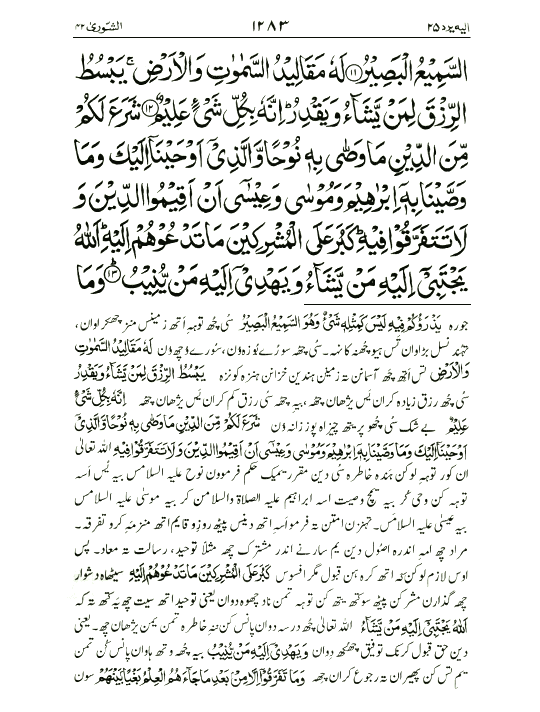 الیہ یرد ۲۵ ۱۲۸۳ الشورٰی ۴۲
السَّمِيْعُ الْبَصِيْرُ ۝۱۱ لَهٗ مَقَالِيْدُ السَّمٰوٰتِ وَالْاَرْضِ ۚ يَبْسُطُ
الرِّزْقَ لِمَنْ يَّشَآءُ وَيَقْدِرُ ؕ اِنَّهٗ بِكُلِّ شَيْءٍ عَلِيْمٌ ۝۱۲ شَرَعَ لَكُمْ
مِّنَ الدِّيْنِ مَا وَصّٰى بِهٖ نُوْحًا وَّالَّذِيْٓ اَوْحَيْنَآ اِلَيْكَ وَمَا
وَصَّيْنَا بِهٖٓ اِبْرٰهِيْمَ وَمُوْسٰى وَعِيْسٰٓى اَنْ اَقِيْمُوا الدِّيْنَ وَ
لَا تَتَفَرَّقُوْا فِيْهِ ؕ كَبُرَ عَلَى الْمُشْرِكِيْنَ مَا تَدْعُوْهُمْ اِلَيْهِ ؕ اَللّٰهُ
يَجْتَبِيْٓ اِلَيْهِ مَنْ يَّشَآءُ وَيَهْدِيْٓ اِلَيْهِ مَنْ يُّنِيْبُ ۝۱۳ وَمَا
جورہ يَذْرَؤُكُمْ فِيْهِ لَيْسَ كَمِثْلِهٖ شَيْءٌ وَهُوَ السَّمِيْعُ الْبَصِيْرُ سُی چھُ توہہِ اَتھ زمینس منز چھکراوان،
تہنز نسل بڑاوان تَس ہیو چھنہ کانہہ۔ سُی چھہ سورُے بوزوُن، سورُے وُچھ وُن لَهٗ مَقَالِيْدُ السَّمٰوٰتِ
وَالْاَرْضِ تس اتھِ چھہ آسمانن تہ زمین ہندین خزانن ہنزہ کونزہ يَبْسُطُ الرِّزْقَ لِمَنْ يَّشَآءُ وَيَقْدِرُ
سُی چھُہ رزق زیادہ کران یَس یژھان چھہ، بیہ چھہ سُی رزق کم کران یَس یژھان چھہ اِنَّهٗ بِكُلِّ شَيْءٍ
عَلِيْمٌ بے شک سُی چھو پر یتھ چیزاہ پوز زانہ وُن شَرَعَ لَكُمْ مِّنَ الدِّيْنِ مَا وَصّٰى بِهٖ نُوْحًا وَّالَّذِيْٓ
اَوْحَيْنَآ اِلَيْكَ وَمَا وَصَّيْنَا بِهٖٓ اِبْرٰهِيْمَ وَمُوْسٰى وَعِيْسٰٓى اَنْ اَقِيْمُوا الدِّيْنَ وَلَا تَتَفَرَّقُوْا فِيْهِ اللہ تعالٰی
ان کور توہہ لوکن ہندہ خاطرہ سُی دین مقرر یمیک حکم فرموون نوح علیہ السلامس بیہ یُس اسہ
توہہ کن وحی کر بیہ یمچ وصیت اسہ ابراہیم علیہ الصلاۃ والسلامن کر بیہ موسٰی علیہ السلامس
بیہ عیسٰی علیہ السلامس۔ تہنزن امتن تہ فرمواسہِ اتھ دینس پیٹھ روزو قایم اتھ منز مہ کرو تفرقہ۔
مراد چھ امہ اندرہ اصول دین یم سارنے اندر مشترک چھہ مثلاً توحید، رسالت تہ معاد۔ یس
اوس لازم لوکن کہ اتھ کرہ ہن قبول مگر افسوس كَبُرَ عَلَى الْمُشْرِكِيْنَ مَا تَدْعُوْهُمْ اِلَيْهِ سیٹھاہ دشوار
چھہ گذاران مشرکن پیٹھ سوکتھ یتھ کن توہہ تمن ناد چھوہ دوان یعنی توحید اتھ سیت چھہ یہ کتھ تہ کہ
اَللّٰهُ يَجْتَبِيْٓ اِلَيْهِ مَنْ يَّشَآءُ اللہ تعالٰی چھُ درسہ دوان پانس کن نتہ خاطرہ تمن یمن یژھان چھہ۔ یعنی
دین حق قبول کرنک توفیق چھہ تمن دوان وَيَهْدِيْٓ اِلَيْهِ مَنْ يُّنِيْبُ بیہ چھہ وتھ ہاوان پانس کُن تمن
یم تس کن پھیران تہ رجوع کران چھہ وَمَا تَفَرَّقُوْٓا اِلَّا مِنْۢ بَعْدِ مَا جَآءَهُمُ الْعِلْمُ بَغْيًاۢ بَيْنَهُمْ سون